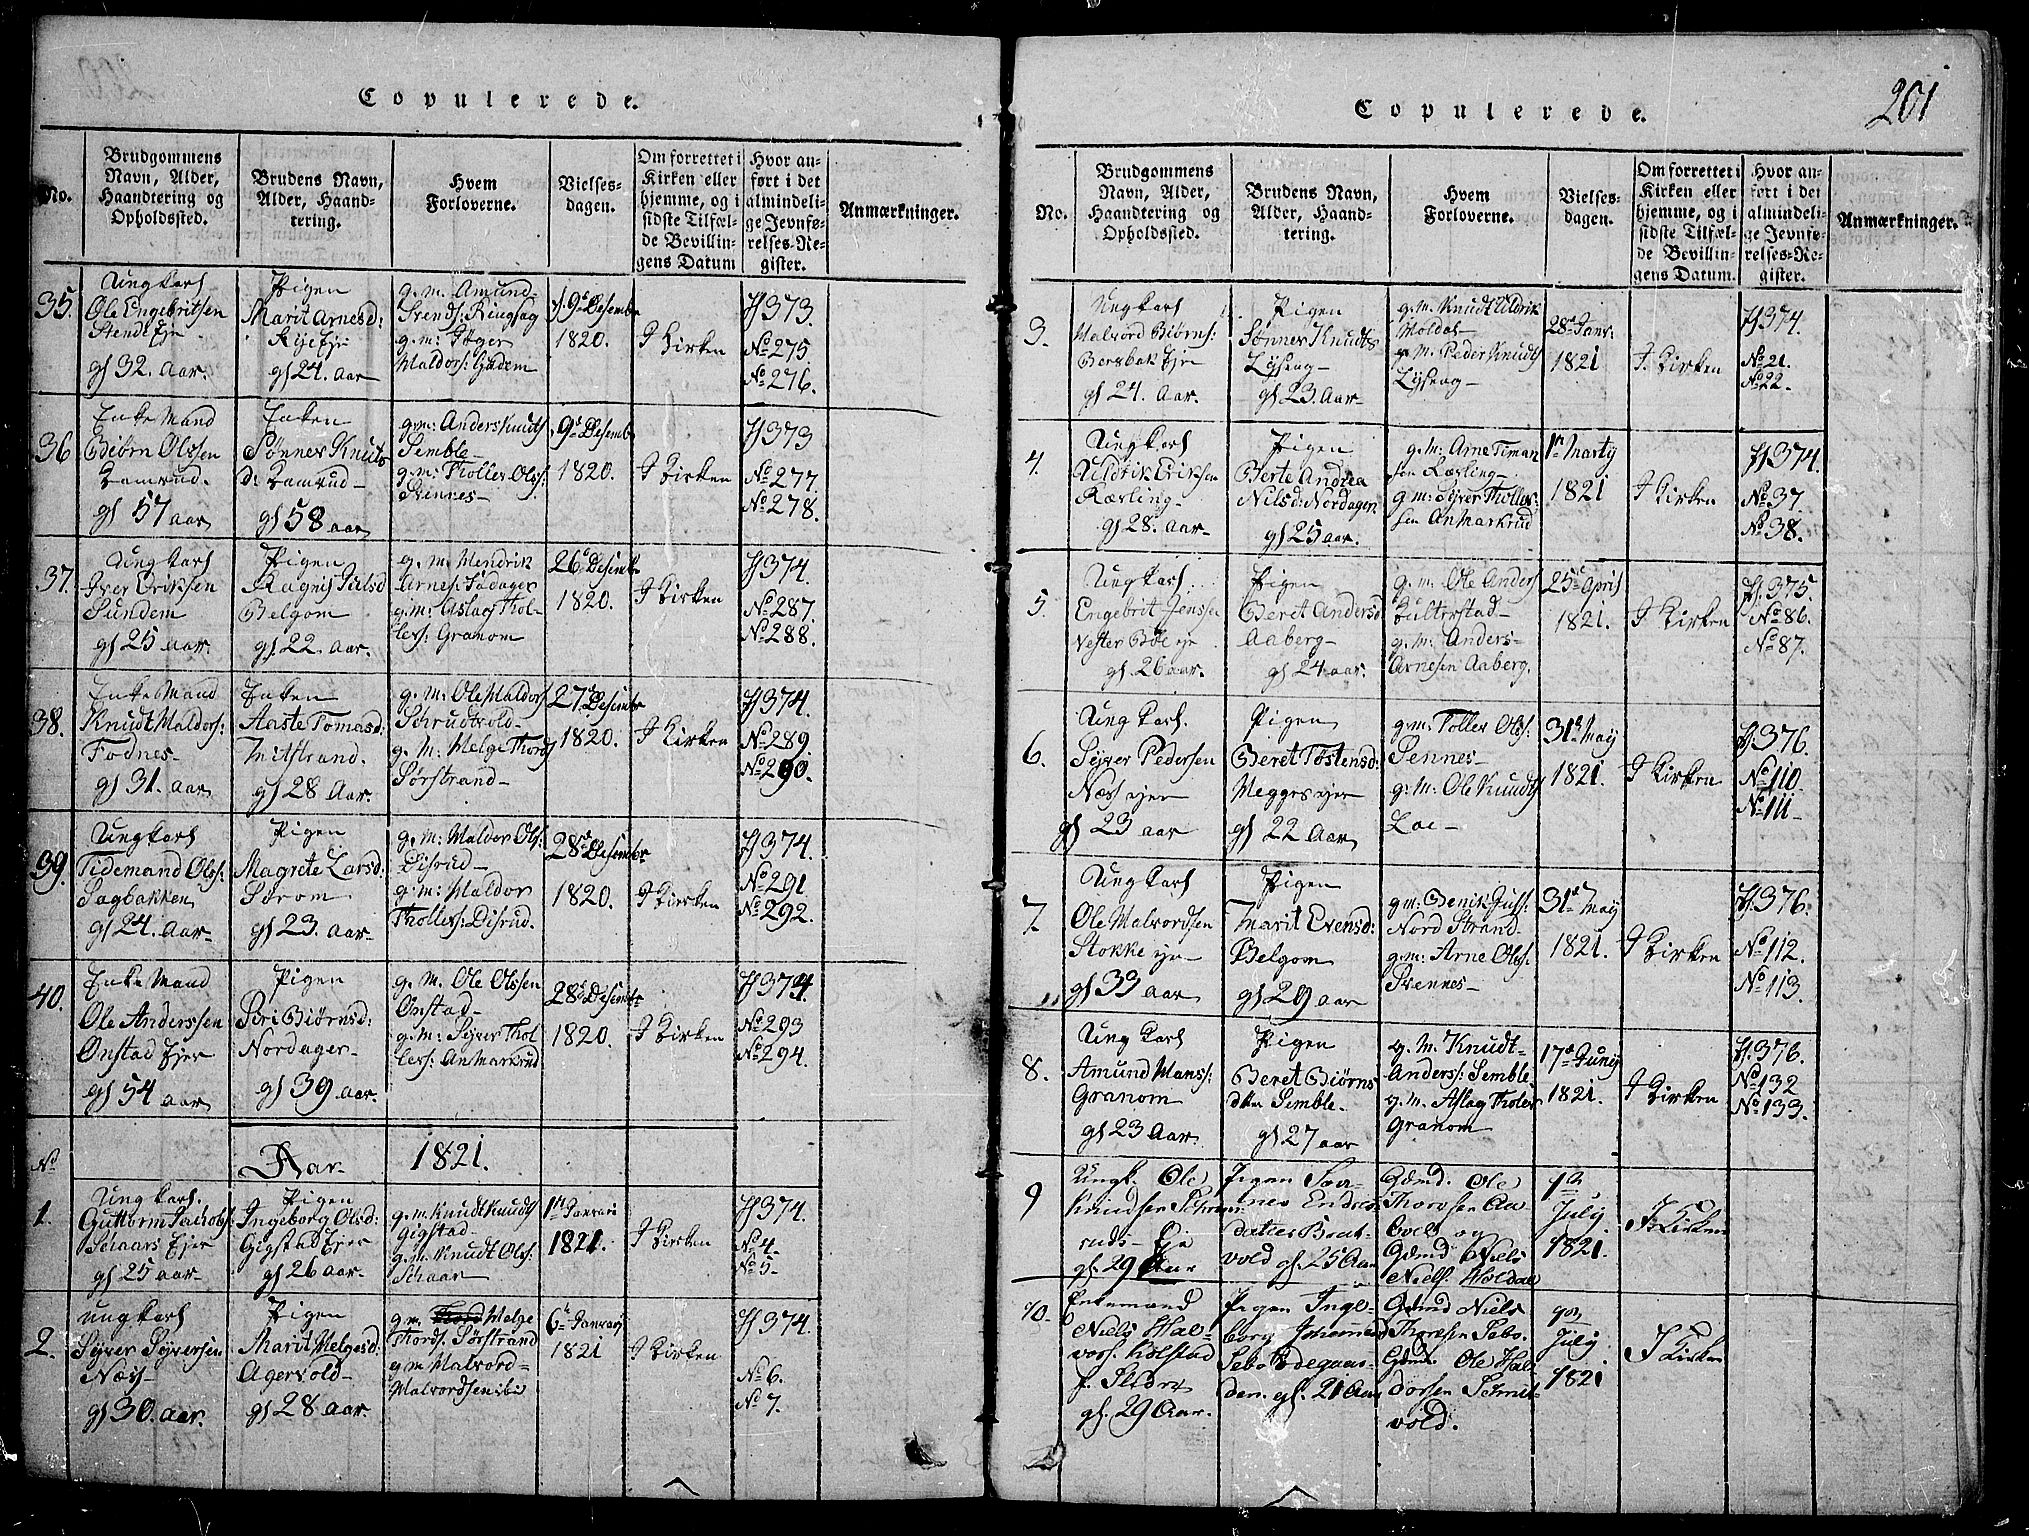 Copulerede.
No.
Brudgommens
Navn, Alder,
Haandtering og
Opholdssted.
Brudens Navn,
Alder, Haand-
tering.
Hvem
Forloverne.
Vielses-
dagen.
Om forrettet i
Kirken eller
hjemme, og i
sidste Tilfæl-
de Bevillin-
gens Datum
Hvor an-
ført i det
almindeli-
ge Jevnfø-
relses-Re-
gister.
Anmærkninger.
35.
Ungkarl
Ole Engebritsen
Stende Eje
gl 32. Aar.
Pigen
Marit Arnesd:
Rye Eje
gl 24. aar
g.m. Amund
Svends: Ringsag
g.m:
Haldors: Gadem
9de Desembr
1820.
J Kirken
fl 373.
No 275.
No 276.
36
Enke Mand
Biørn Olssen
Bamrud.
gl 57 aar
Enken
Sønnev Knuts
d: Bamrud
gl 58 aar
gm: Anders Knudts
Semble
g.m: Tholler Ols:
Svennes
9de Desembr
1820.
J Kirken
fl 373
No 277.
No 278.
37.
Ungkarl
Iver Eriksen
Sundem
gl 25 aar
Pigen
Ragnis Juelsd
Belgom
gl. 22. aar.
g. m. Hendrik
Arnes: Fodager
g.m: Aslag Thol-
lers: Granom
26de Desembr
1820.
J Kirken
fl 374.
No 287.
No 288.
38.
Enke Mand
Knudt Haldors:
Fodnes
gl 31. aar
Enken
Aaste Tomasd:
Midstrand.
gl 28 Aar.
g.m: Ole Haldors
Schrudtvold
g. M. Helge Thords
Sørstrand
27de Desembr
1820.
J Kirken
fl 374.
No 289.
No 290.
39.
Ungkarl
Tidemand Ols:
Sagbakken
gl 24. Aar
Pigen
Magrete Larsd:
Sørom
gl 23. aar
g.m: Haldor Ols:
Disrud
g.m: Haldor
Tholles: Disrud.
28de Desembr
1820.
J Kirken
fl 374.
No 291
No 292.
40.
Enke Mand
Ole Anderssen
Onstad Ejer
gl 54 aar
Pigen
Siri Biørnsd:
Nordager
gl 39 aar.
g. M. Ole Olssen
Onstad
g.m: Syver Thol
lers: Anmarkrud
28de Desembr
1820.
J Kirken
fl 374.
No 293
No 294.
No
Aar 1821.
1.
Ungkarl.
Guttorm Jachobs:
Schaars Ejer
gl 25 aar
Pigen
Ingeborg Olsd:
Gigstad Ejer
gl 26 aar
g.m: Knudt Knudts
Gigstad
g.m: Knudt Ols:
Schaar
1ste Januari
1821.
J Kirken
fl 374.
No 4.
No 5
2.
Ungkarl
Syver Syversen
Næss
gl 30. aar.
Pigen
Marit Helgesd:
Agervold
gl 28 aar.
g.m. Helge
Thords. Sørstrand
g.m Halvord
Halvordsen ibi
6te Januari
1821
J Kirken
fl 374.
No 6.
No 7.
Copulerede.
201
No.
Brudgommens
Navn, Alder,
Haandtering og
Opholdssted.
Brudens Navn,
Alder, Haand-
tering.
Hvem
Forloverne.
Vielses-
dagen.
Om forrettet i
Kirken eller
hjemme, og i
sidste Tilfæl-
de Bevillin-
gens Datum.
Hvor an-
ført i det
almindeli-
ge Jevnfø-
relses-Re-
gister.
Anmærkninger.
3.
Ungkarl
Halvord Biørns:
Borsbak Eje
gl 24. Aar.
Pigen
Sønnev Knudts
Lyseng
gl. 23. Aar
g.m. Knudt Uldrik
Moldal
g. M. Peder Knudts
Lyseng
28de Janr:
1821
J. Kirken
fl 374.
No 21.
No 22.
4.
Ungkarl
Uldrik Eriksen
Ræsling
gl 28. aar
Pigen
Berte Andrea
Nilsd: Nordagen
gl 25 aar.
g.m: Arne Timan
sen Ræsling
g m: Syver Tholler
sen Anmarkrud
1ste Marty
1821
J Kirken
fl 374.
No 37.
No 38.
5.
Ungkarl.
Engebrit Jenssen
Vester Bøe eje
gl. 26 aar
Pigen
Beret Andersd
Aaberg
gl 24 aar.
g. m. Ole Anders
Bulterstad
g. M: Anders
Arnesen Aaberg.
25de April
1821.
J Kirken
fl. 375.
No 86.
No 87.
6.
Ungkarl.
Syver Pedersen
Næss ejer
gl 23 aar
Pigen
Beret Tostensd:
Megges ejer
gl 22 Aar
gm. Toller Ols:
Sennes
g: M: Ole Knudts
Loe
31te May
1821.
J Kirken
fl 376.
No 110.
No 111
7.
Ungkarl
Ole Halvordsen
Stokke eje
gl 33 aar
Pigen
Marit Evensd:
Belgom
gl 29 aar
g m:
Nord Strand
g.m: Arne Ols:
Svennes
31te May
1821.
J Kirken
fl. 376.
No 112.
No 113.
8.
Ungkarl
Amund Hans:
Granom
gl 23 Aar
Pigen
Beret Biørns
dtr Semble.
gl 27 aar
g. M. Knudt
Anders: Semble
g. m. Aslag Tholer
Granom
17de Juny
1821.
J Kirken
fl. 376.
No 132
No 133.
9
Ungk. Ole
Knudsen
ruds Eje
gl. 29 Aar
Pigen
Endres
datter
vold gl. 25 Aar
Gdmd. Ole
Thorsen
og
Gdmd Niels
Niels:
1ste
July
1821.
J Kirken
10.
Enkemand
Niels Hal-
vors. Kolstad
f. Slidre
gl. 29 Aar.
Pigen Inge-
borg
Sebo Ødegaar-
den. gl. 21 Aar
Gdmd Niels
Thoresen Sebo.
Gdmd. Ole Hal-
dorsen
vold.
July
1821
J Kirken